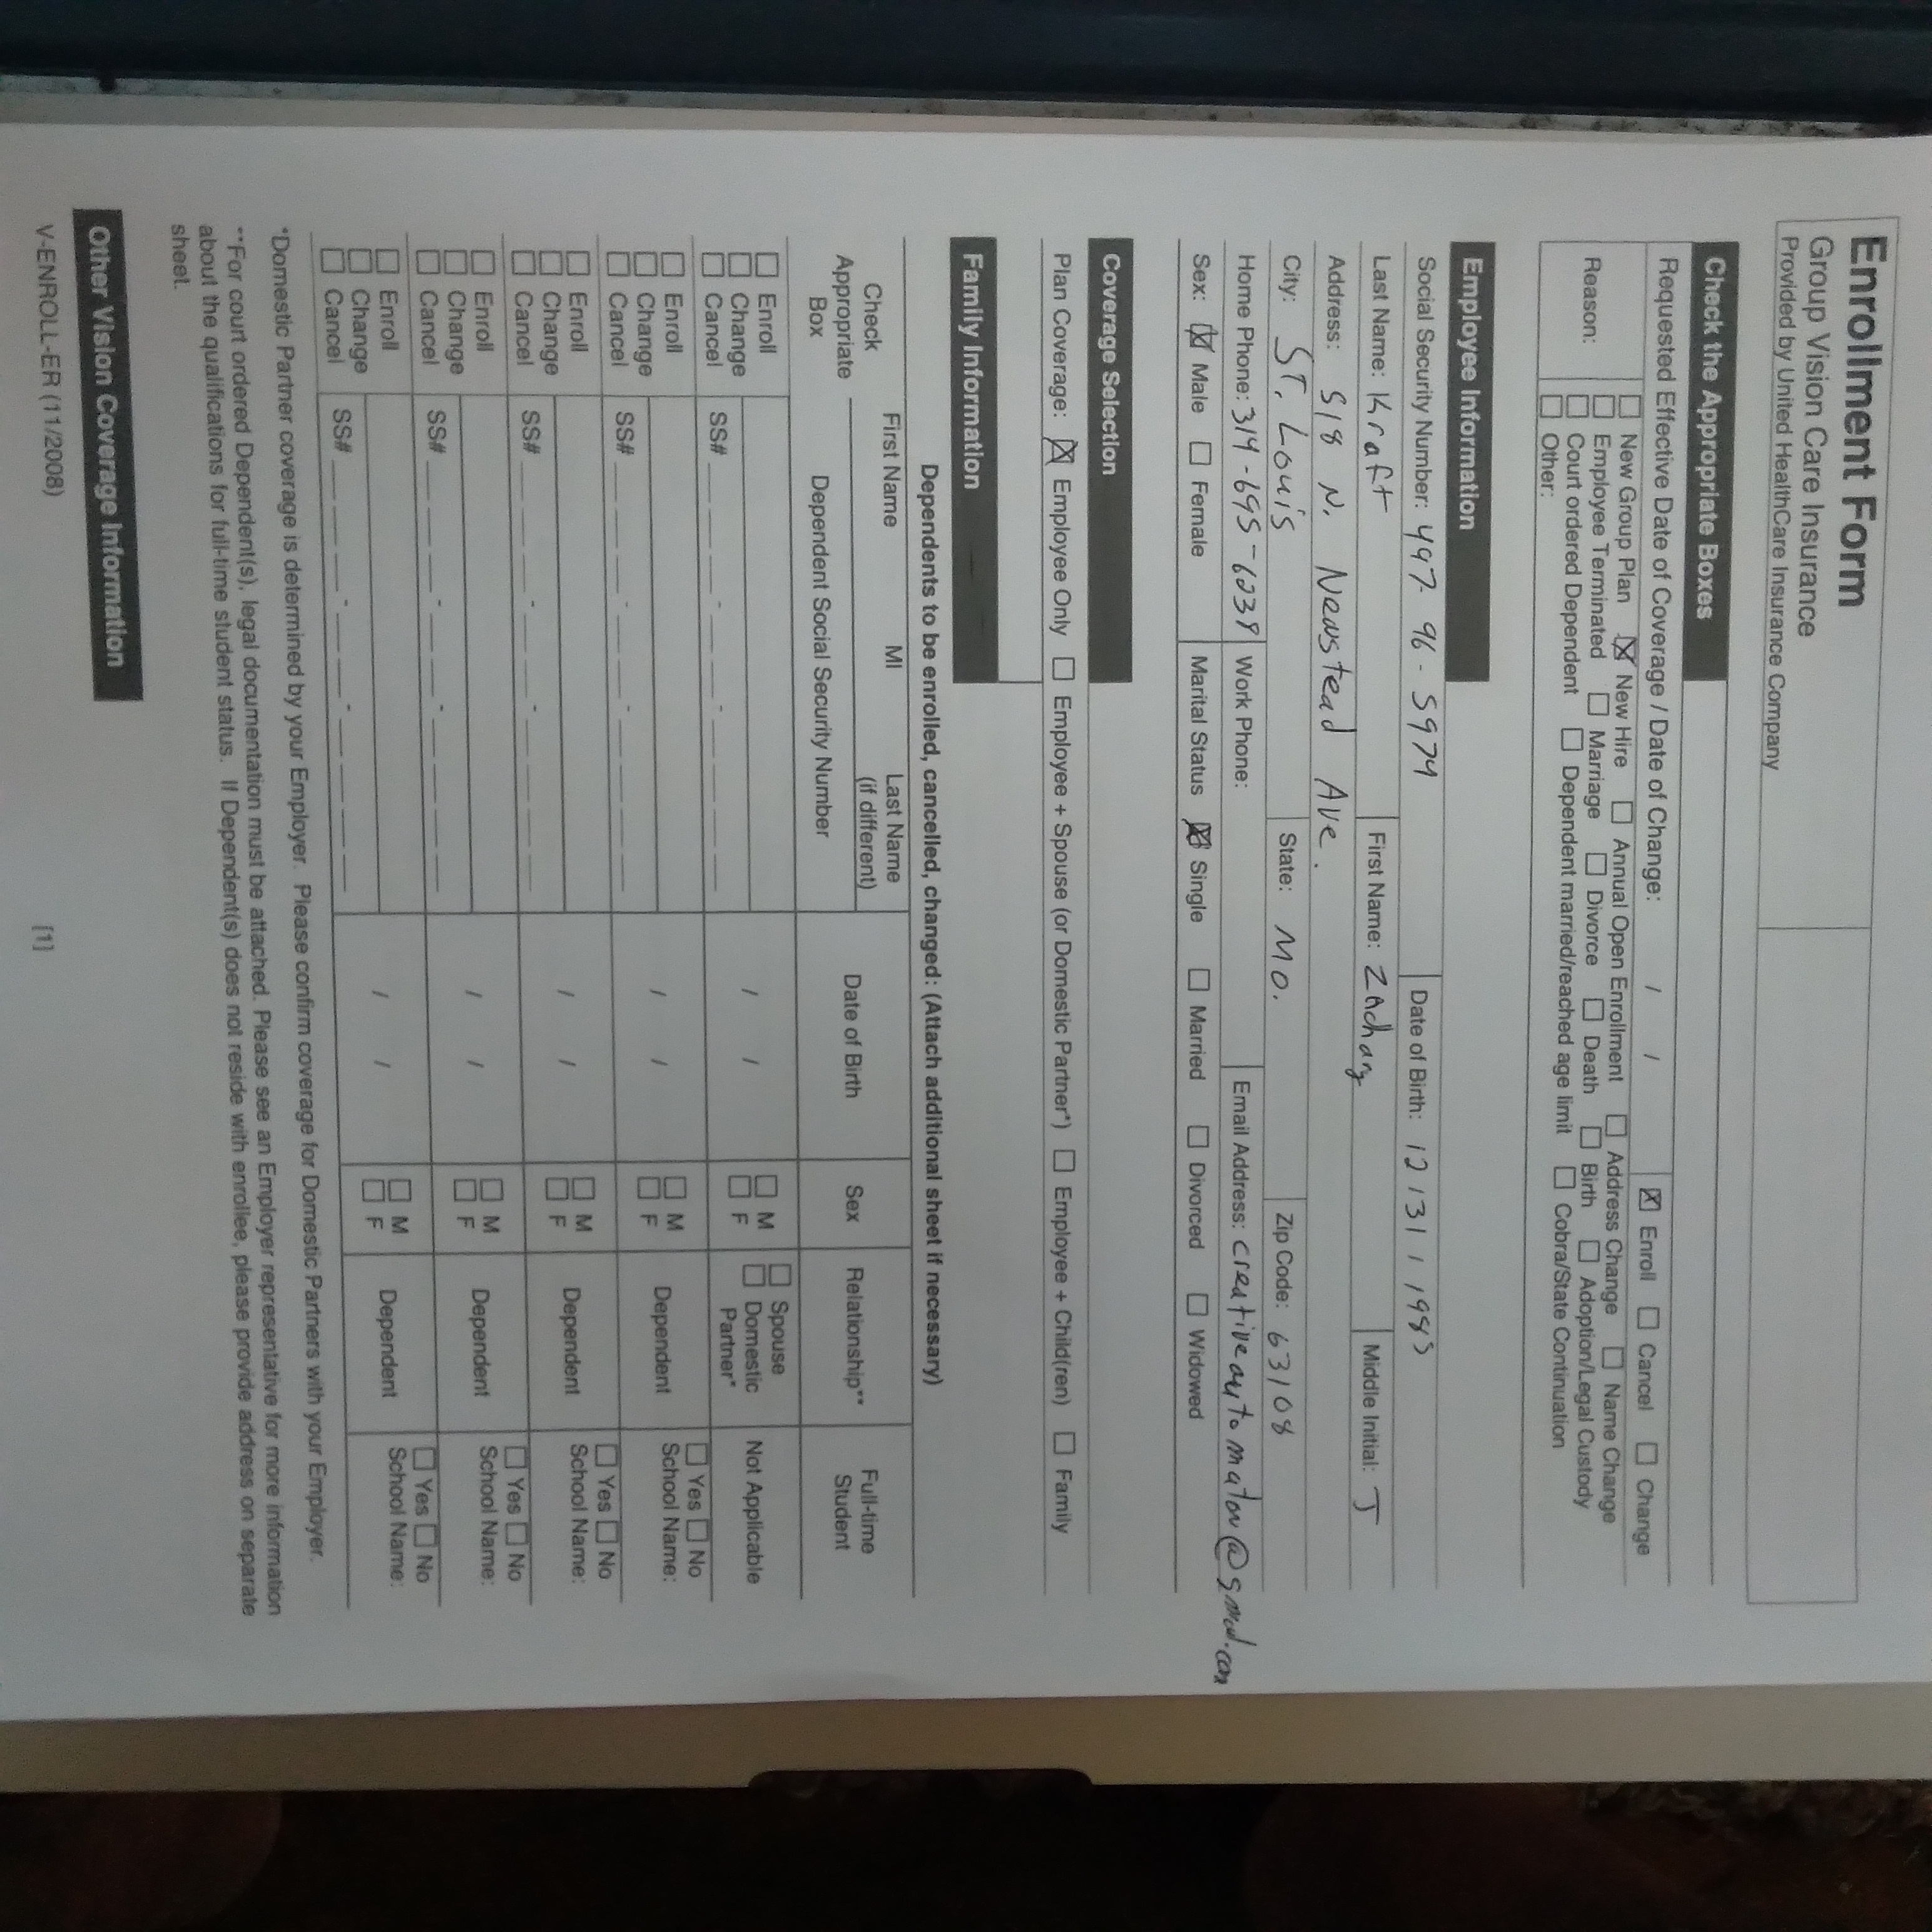 Enrollment Form
Group Vision Care Insurance
Provided by United HealthCare Insurance Company
Check the Appropriate Boxes
Requested Effective Date of Coverage / Date of Change: / / ☒ Enroll ☐ Cancel ☐ Change
Reason:
☐ New Group Plan ☒ New Hire ☐ Annual Open Enrollment ☐ Address Change ☐ Name Change
☐ Employee Terminated ☐ Marriage ☐ Divorce ☐ Death ☐ Birth ☐ Adoption/Legal Custody
☐ Court ordered Dependent ☐ Dependent married/reached age limit ☐ Cobra/State Continuation
☐ Other:
Employee Information
Social Security Number: 497-96-5974 Date of Birth: 12/31/1983
Last Name: Kraft First Name: Zachary Middle Initial: J
Address: 518 N. Newstead Ave.
City: ST. Louis State: MO. Zip Code: 63108
Home Phone: 314-695-6238 Work Phone: Email Address: creativeautomaton@gmail.com
Sex: ☒ Male ☐ Female Marital Status ☒ Single ☐ Married ☐ Divorced ☐ Widowed
Coverage Selection
Plan Coverage: ☒ Employee Only ☐ Employee + Spouse (or Domestic Partner*) ☐ Employee + Child(ren) ☐ Family
Family Information
Dependents to be enrolled, cancelled, changed: (Attach additional sheet if necessary)
Check Appropriate Box
First Name MI Last Name (if different)
Dependent Social Security Number
Date of Birth
Sex
Relationship**
Full-time Student
☐ Enroll
☐ Change
☐ Cancel
SS# - -
/ /
☐ M
☐ F
☐ Spouse
☐ Domestic Partner*
Not Applicable
☐ Enroll
☐ Change
☐ Cancel
SS# - -
/ /
☐ M
☐ F
Dependent
☐ Yes ☐ No
School Name:
☐ Enroll
☐ Change
☐ Cancel
SS# - -
/ /
☐ M
☐ F
Dependent
☐ Yes ☐ No
School Name:
☐ Enroll
☐ Change
☐ Cancel
SS# - -
/ /
☐ M
☐ F
Dependent
☐ Yes ☐ No
School Name:
☐ Enroll
☐ Change
☐ Cancel
SS# - -
/ /
☐ M
☐ F
Dependent
☐ Yes ☐ No
School Name:
*Domestic Partner coverage is determined by your Employer. Please confirm coverage for Domestic Partners with your Employer.
**For court ordered Dependent(s), legal documentation must be attached. Please see an Employer representative for more information
about the qualifications for full-time student status. If Dependent(s) does not reside with enrollee, please provide address on separate
sheet.
Other Vision Coverage Information
V-ENROLL-ER (11/2008) [1]